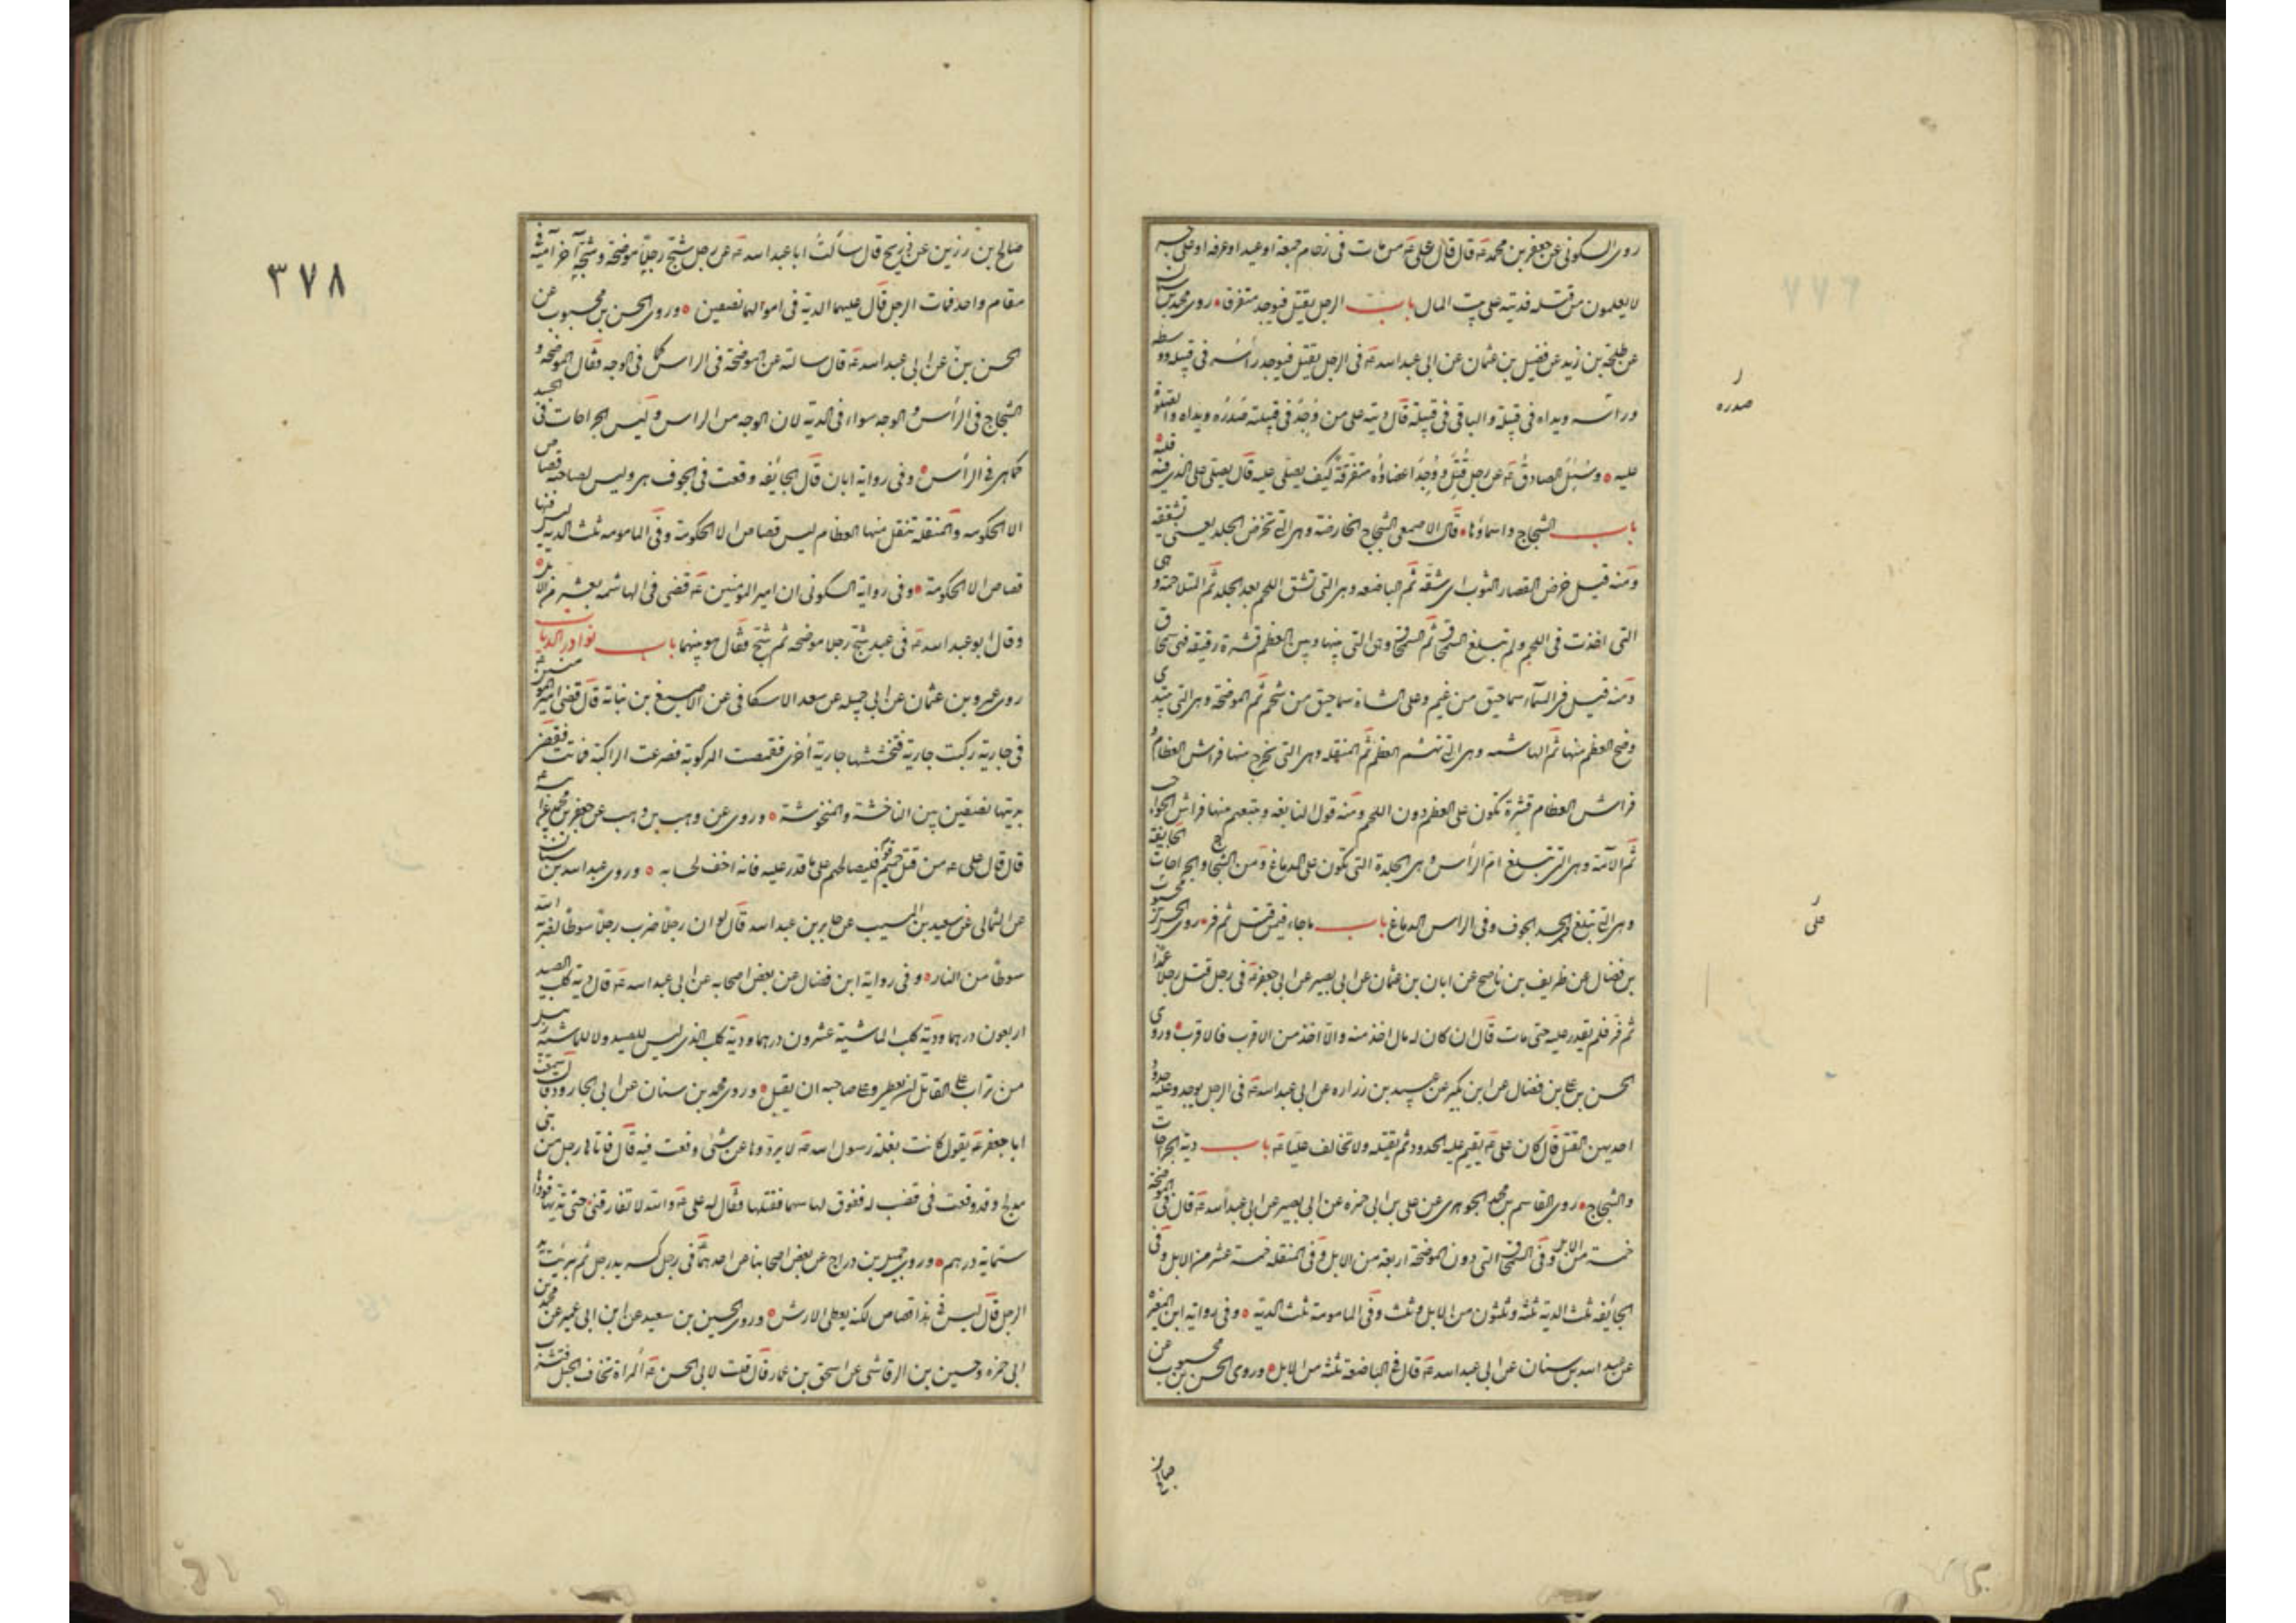 روى السكونى عن جعفر بن محمد ع قال قال على ع من مات فى زحام جمعة او عيد او عرفة او على جسر
لا يعلمون من قتله فديته على بيت المال باب الرجل يقتل فيوجد متفرقا روى محمد بن سنان
عن طلحة بن زيد عن فضيل بن عثمان عن ابى عبد الله ع فى الرجل يقتل فيوجد رأسه فى قبيلة ووسطه
وراسه ويداه فى قبيلة والباقى فى قبيلة قال ديته على من وُجِدَ فى قبيلته صَدْرُه ويداه والصلوة
عليه وسُئِلَ الصادقُ ع عن رجل قُتِلَ ووُجِدَ اعضاؤه متفرقة كيف يصلى عليه قال يصلى على الذى فيه قلبه
باب الشجاج واسماؤها قال الاصمعى الشجاج الخارصة وهى التى تخرص الجلد يعنى تشققه
ومنه قيل خرص القصار الثوب اى شقه ثم الباضعة وهى التى تشق اللحم بعد الجلد ثم المتلاحمة وهى
التى اخذت فى اللحم ولم تبلغ السمحاق ثم السمحاق وهى التى بينها وبين العظم قشرة رقيقة فهى سمحاق
ومنه قيل فى السماء سماحيق من غيم وعلى الشاة سماحيق من شحم ثم الموضحة وهى التى تبدى
وضح العظم منها ثم الهاشمه وهى التى تهشم العظم ثم المنقله وهى التى يخرج منها فراش العظام و
فراش العظام قشرة تكون على العظم دون اللحم ومنه قول النابغه ويتبعهم منها فراش الحواجب
ثم الآمة وهى التى تبلغ ام الرأس وهى الجلدة التى تكون على الدماغ ومن الشجاج والجراحات الجايفة
وهى التى تبلغ فى الجسد الجوف وفى الراس الدماغ باب ماجاء فيمن قتل ثم فر روى الحسن
بن فضال عن ظريف بن ناصح عن ابان بن عثمان عن ابى بصير عن ابى جعفر ع فى رجل قتل رجلا عمدا
ثم فَرّ فلم يقدر عليه حتى مات قال ان كان له مال اخذ منه والا اخذ من الاقرب فالاقرب وروى
الحسن بن على بن فضال عن ابن بكير عن عبيد بن زراره عن ابى عبد الله ع فى الرجل يوجد وعليه حدود
احديهن القتل قال كان على ع يقيم عليه الحدود ثم يقتله ولا تخالف عليا ع باب دية الجراحات
والشجاج روى القاسم بن محمد الجوهرى عن على بن ابى حمزه عن ابى بصير عن ابى عبد الله ع قال فى الموضحة
خمسة من الابل وفى السمحاق التى دون الموضحة اربعة من الابل وفى المنقله خمسة عشر من الابل وفى
الجائفه ثلث الدية ثلثه وثلثون من الابل وثلث وفى المامومة ثلث الدية وفى رواية ابن المغيرة
عن عبد الله بن سنان عن ابى عبد الله ع قال فى الباضعة ثلثة من الابل وروى الحسن بن محبوب عن
صالح
صدره
على
٣٧٨
صالح بن رزين عن ذريح قال سألت ابا عبد الله ع عن رجل شج رجلا موضحة وشجه آخر آمة فى
مقام واحد فمات الرجل قال عليهما الدية فى اموالهما نصفين وروى الحسن بن محبوب عن
الحسن بن عن ابى عبد الله ع قال سالته عن الموضحة فى الراس كما فى الوجه فقال الموضحه و
الشجاج فى الرأس والوجه سواء فى الدية لان الوجه من الراس وليس الجراحات فى الجسد
كما هى فى الرأس وفى رواية ابان قال الجائفه وقعت فى الجوف هى وليس لصاحبها قصاص
الا الحكومه والمنقله تنقل منها العظام ليس قصاص الا الحكومة وفى المامومه ثلث الدية ليس فيها
قصاص الا الحكومة وفى رواية السكونى ان امير المؤمنين ع قضى فى الهاشمه بعشر من الابل
وقال ابو عبد الله ع فى عبد شج رجلا موضحه ثم شج فقال هو بينهما باب نوادر الديات
روى عمرو بن عثمان عن ابى جميله عن سعد الاسكافى عن الاصبغ بن نباتة قال قضى امير المؤمنين
فى جارية ركبت جارية فنخستها جارية اخرى فقمصت المركوبة فصرعت الراكبة فماتت فقضى
بديتها نصفين بين الناخسة والمنخوسة وروى عن وهب بن وهب عن جعفر بن محمد عن ابيه
قال قال على ع من قتل حميم قوم فليصالحهم على ما قدر عليه فانه اخف لحسابه وروى عبد الله بن سنان
عن الثمالى عن سعيد بن المسيب عن جابر بن عبد الله قال لو ان رجلا ضرب رجلا سوطا لضربه الله
سوطا من النار وفى رواية ابن فضال عن بعض اصحابه عن ابى عبد الله ع قال دية كلب الصيد
اربعون درهما ودية كلب الماشية عشرون درهما ودية كلب الذى ليس للصيد ولا للماشية زبيل
من تراب على القاتل ان يعطى وعلى صاحبه ان يقبل وروى محمد بن سنان عن ابى الجارود قال سمعت
ابا جعفر ع يقول كانت بغلة رسول الله ص لا يردوها عن شئ وقعت فيه قال فاتاها رجل من بنى
مدلج وقد وقعت فى قصب له ففوق لها سهما فقتلها فقال له على ع والله لا تفارقنى حتى تديها قال فوداها
ستماية درهم وروى جميل بن دراج عن بعض اصحابنا عن احدهما فى رجل كسر يد رجل ثم برئت يد
الرجل قال ليس فى هذا قصاص لكنه يعطى الارش وروى الحسين بن سعيد عن ابن ابى عمير عن محمد بن
ابى حمزه وحسين بن الرقاشى عن اسحق بن عمار قال قلت لابى الحسن ع المراة تخاف الحبل فتشرب